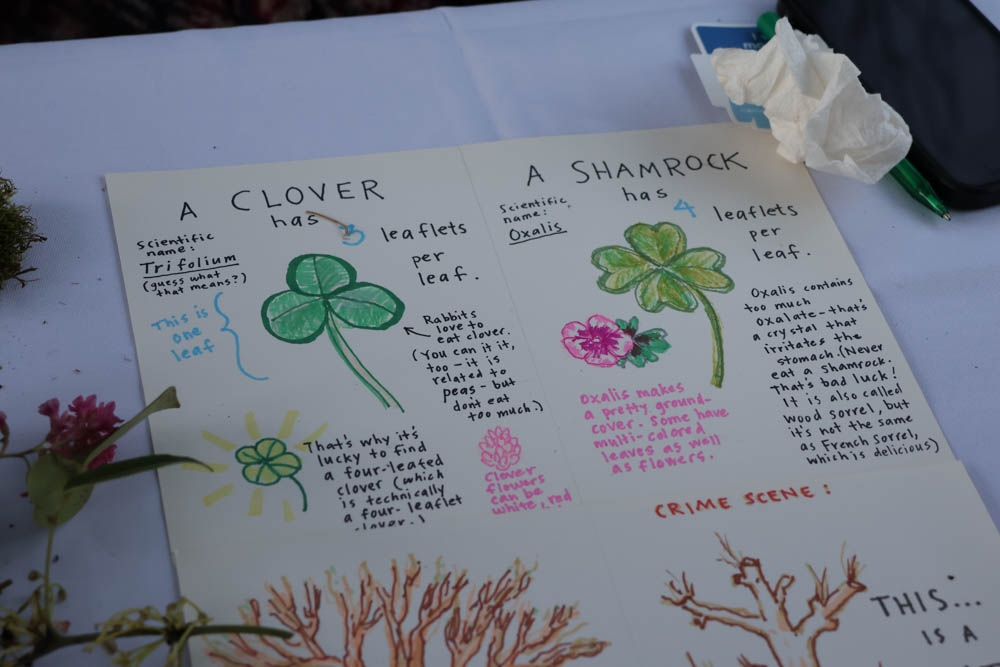 A CLOVER
has 3 leaflets
per
leaf.
Scientific
name:
Trifolium
(guess what
that means?)
This is
one
leaf
Rabbits
love to
eat clover.
(You can it it,
too - it is
related to
peas - but
don't eat
too much.)
That's why it's
lucky to find
a four-leafed
clover (which
is technically
a four-leaflet
clover.)
Clover
flowers
can be
white, red
A SHAMROCK
has 4 leaflets
per
leaf.
Scientific
name:
Oxalis
Oxalis contains
too much
oxalate - that's
a crystal that
irritates the
stomach. (Never
eat a shamrock.
That's bad luck!
It is also called
wood sorrel, but
it's not the same
as French sorrel,
which is delicious)
Oxalis makes
a pretty ground-
cover. Some have
multi-colored
leaves as well
as flowers.
CRIME SCENE:
THIS...
IS A